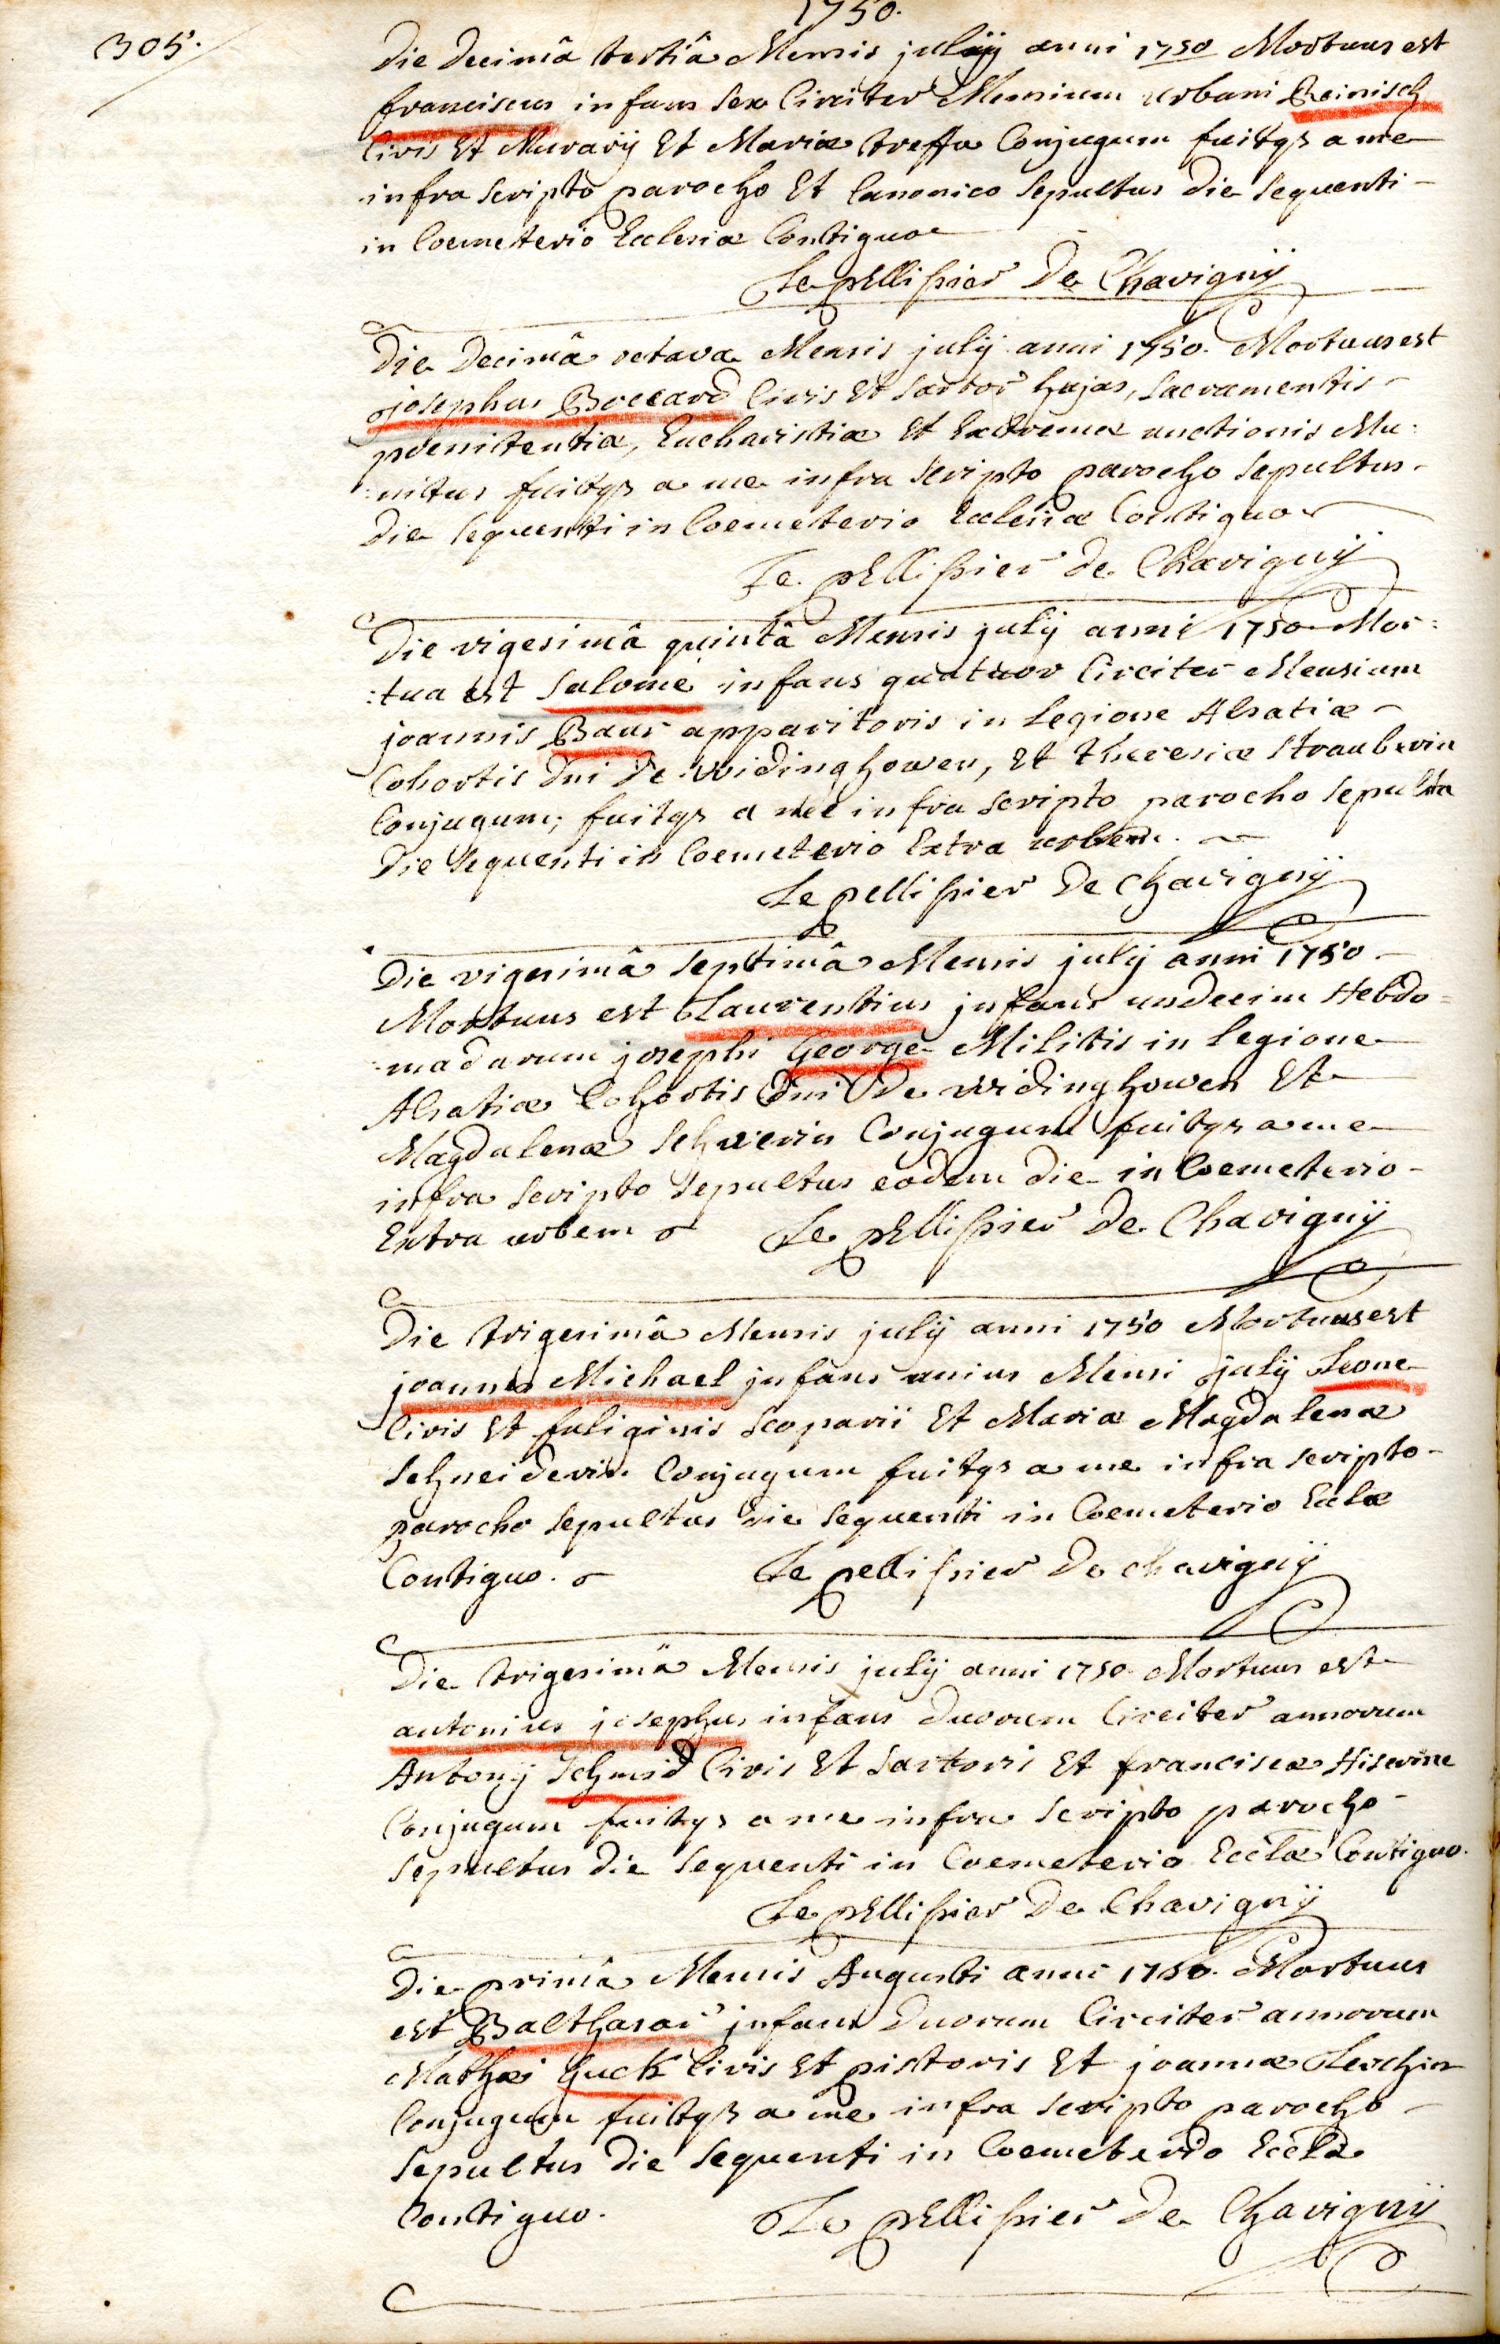 1750.
305.
Die decimâ tertiâ Mensis julij anni 1750 Mortuus est
franciscus infans sex Circiter Mensium urbani Reinisch
Civis Et Murarij Et Mariæ treffa Conjugum fuitqs a me
infra scripto parocho Et Canonico sepultus die sequenti
in Coemeterio Ecclesiæ Contiguo
Le pEllissier De Chavignÿ
Die Decimâ octava Mensis julij anni 1750. Mortuus est
josephus Boccard Civis Et sartor hujas, sacramentis
poenitentiæ, Eucharistiæ Et Extremæ unctionis Mu:
:nitus fuitqs a me infra scripto parocho sepultus
die sequenti in Coemeterio Ecclesiæ Contiguo
Le pEllissier de Chavignÿ
Die vigesimâ quintâ Mensis julij anni 1750 Mor:
:tua est Salome infans quatuor Circiter Mensium
joannis Baur apparitoris in Legione Alsatiæ
Cohortis Dni De Widinghowen, Et theresiæ Strauberin
Conjugum; fuitqs a me infra scripto parocho sepulta
Die sequenti in Coemeterio Extra urbem.
Le pellissier De Chavignÿ
Die vigesimâ septimâ Mensis julij anni 1750
Mortuus est Laurentius infans undecim Hebdo=
:madarum josephi George Militis in Legione
Alsatiæ Cohortis Dni De Widinghowen Et
Magdalenæ Schwerin Conjugum fuitqs a me
infra scripto sepultus eodem die in Coemeterio
Extra urbem Le pEllissier De Chavignÿ
Die trigesimâ Mensis julij anni 1750 Mortuus est
joannes Michael infans unius Mensi julij Leone
Civis Et fuliginis scoparii Et Mariæ Magdalenæ
Schneiderin Conjugum fuitqs a me infra scripto
parocho sepultus die sequenti in Coemeterio Eclæ
Contiguo. Le pellissier De Chavignÿ
Die trigesimâ Mensis julij anni 1750. Mortuus est
antonius josephus infans duorum Circiter annorum
Antonij Schmid Civis Et sartoris Et franciscæ Hiserine
Conjugum fuitqs a me infra scripto parocho
sepultus die sequenti in Coemeterio Ecclæ Contiguo.
Le pEllissier De Chavignÿ
Die primâ Mensis Augusti anni 1750. Mortuus
est Balthasar infans duorum Circiter annorum
Mathæi Guck Civis Et pistoris Et joannæ Lerchin
Conjugum fuitqs a me infra scripto parocho
sepultus die sequenti in Coemeterio Ecclæ
Contiguo. Le pEllissier De Chavignÿ